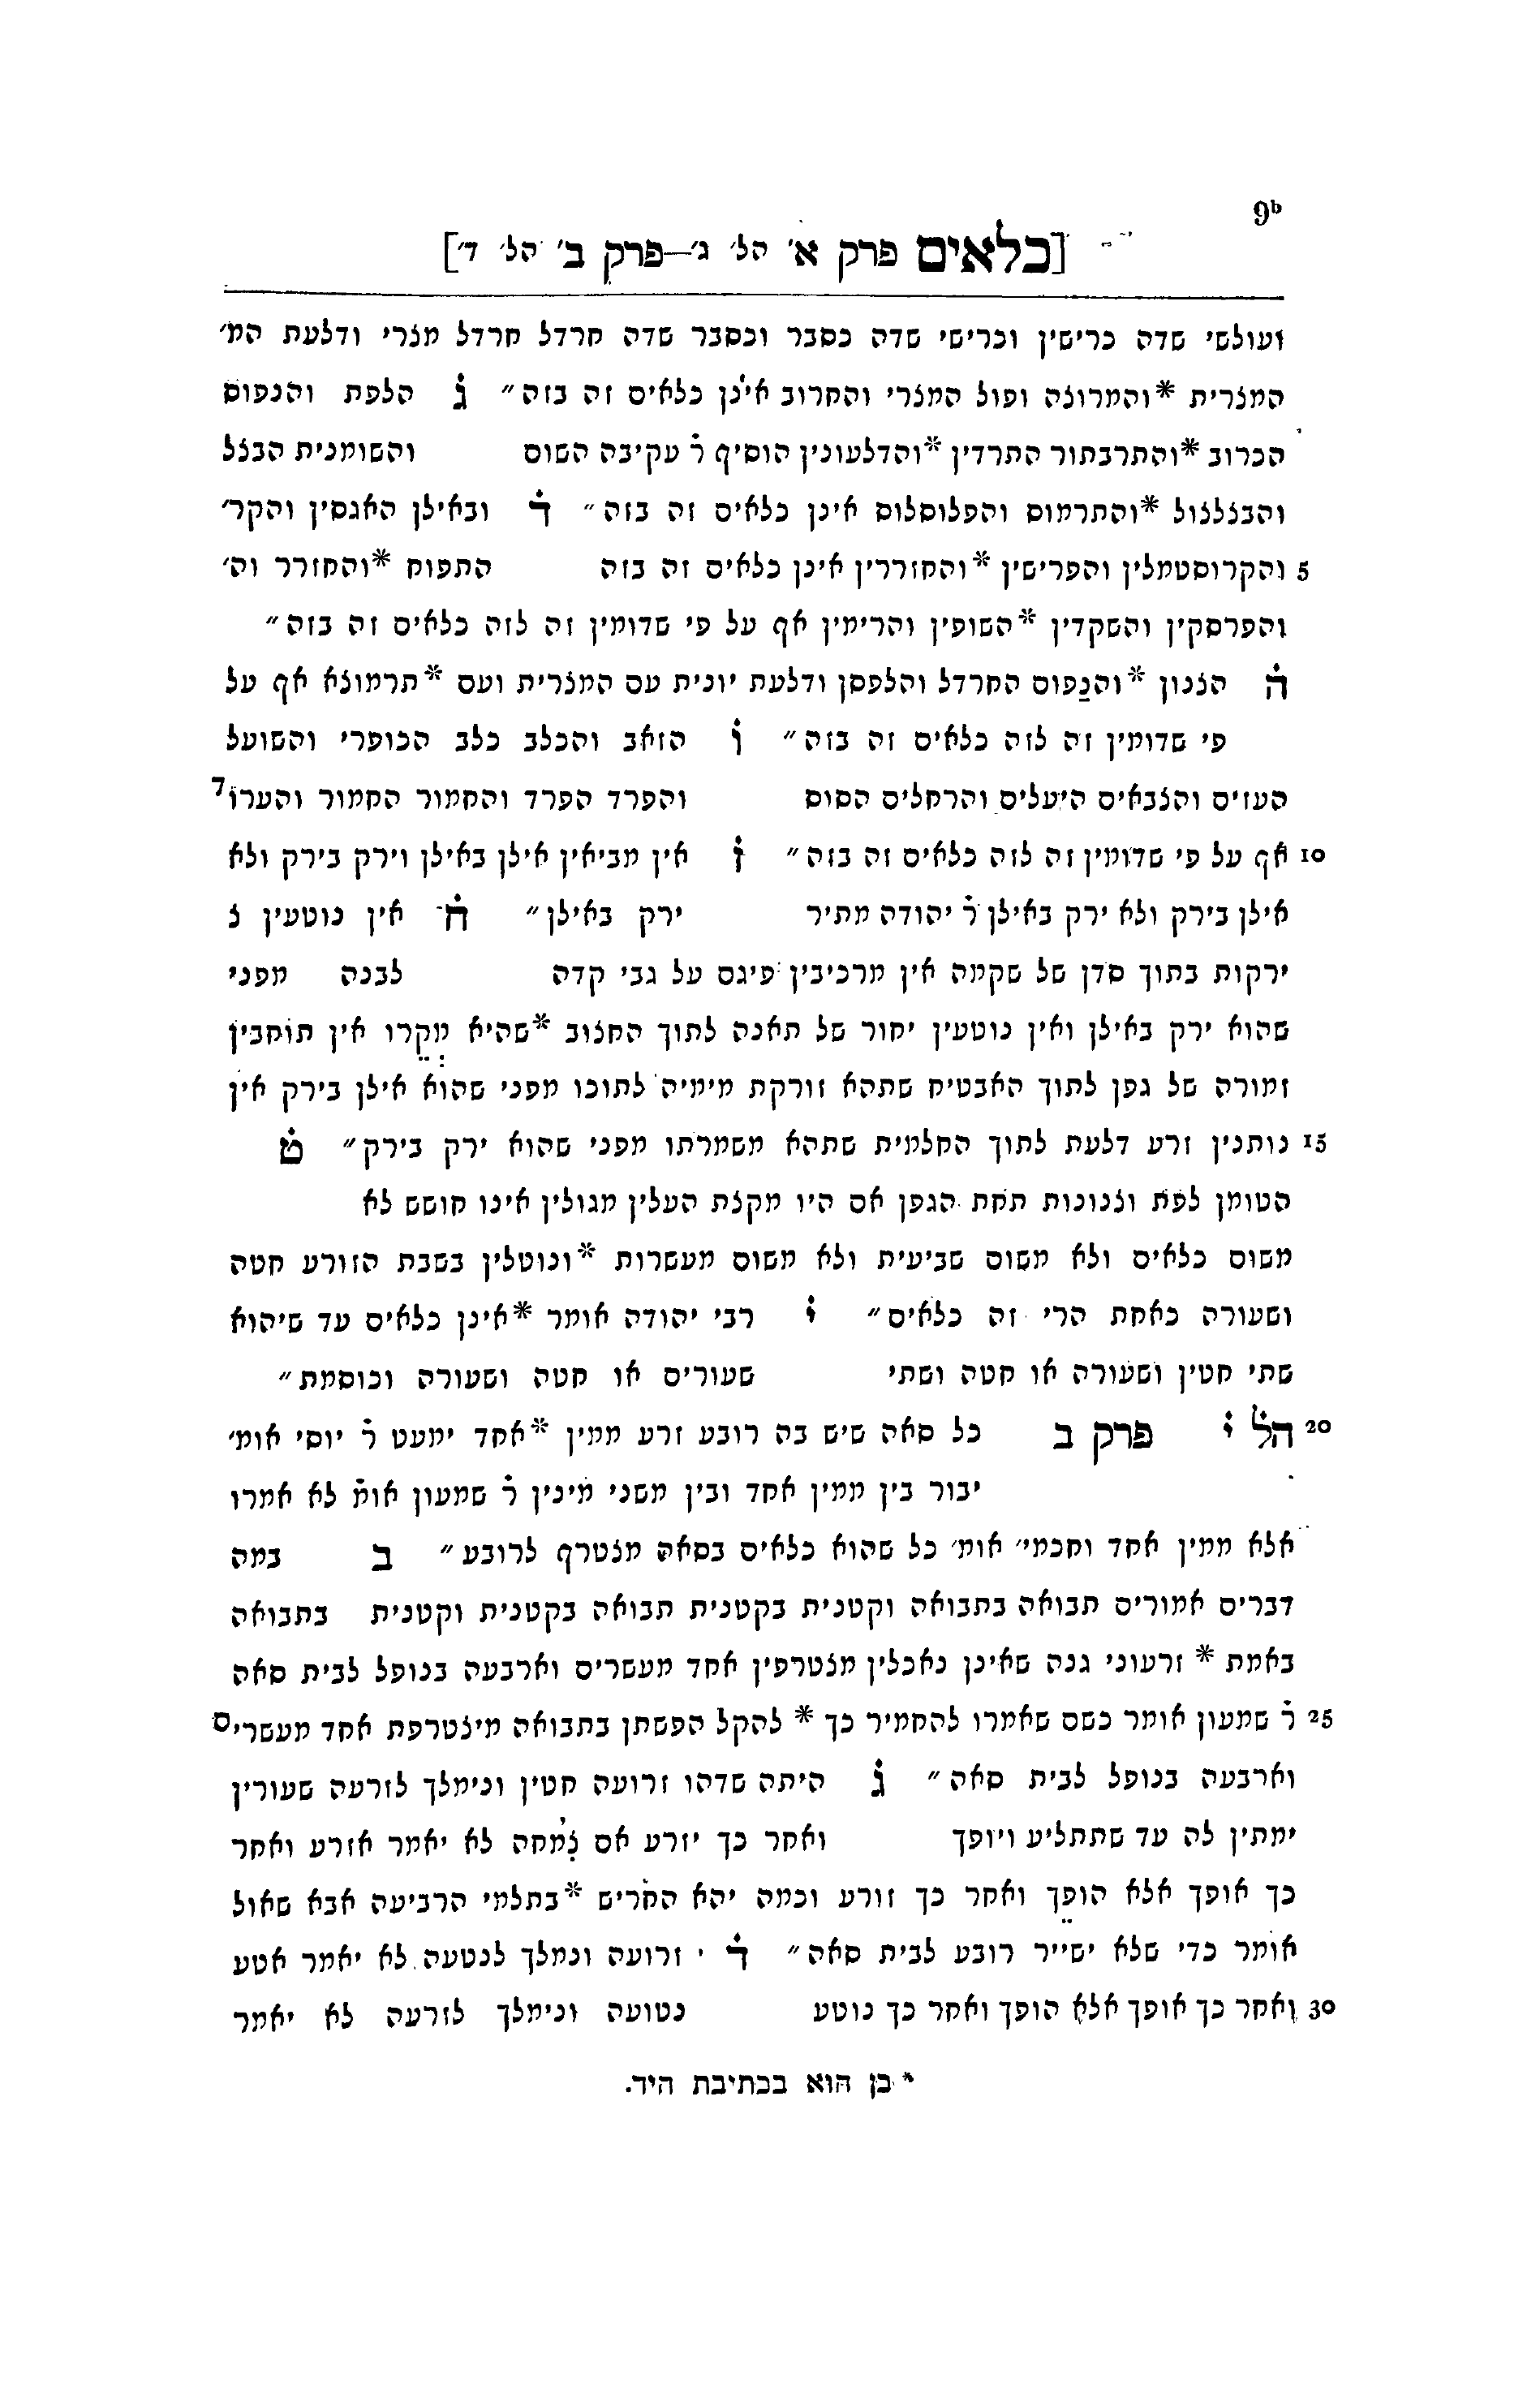 9b
[כלאים פרק א׳ הל׳ ג׳—פרק ב׳ הל׳ ד׳]
ועולשי שדה כרישין וכרישי שדה כסבר וכסבר שדה חרדל חרדל מצרי ודלעת המ׳
המצרית *והמרוצה ופול המצרי והחרוב אינן כלאים זה בזה״ ג הלפת והנפוס
הכרוב *והתרבתור התרדין *והדלעונין הוסיף ר עקיבה השום והשומנית הבצל
והבצלצול *והתרמוס והפלוסלוס אינן כלאים זה בזה״ ד ובאילן האגסין והקר׳
5 והקרוסטמלין והפרישין *והחזררין אינן כלאים זה בזה התפוח *והחזרר וה׳
והפרסקין והשקדין *השופין והרימין אף על פי שדומין זה לזה כלאים זה בזה״
ה הצנון *והנפוס החרדל והלפסן ודלעת יונית עם המצרית ועם *תרמוצא אף על
פי שדומין זה לזה כלאים זה בזה״ ו הזאב והכלב כלב הכופרי והשועל
העזים והצבאים היעלים והרחלים הסוס והפרד הפרד והחמור החמור והערוד
10 אף על פי שדומין זה לזה כלאים זה בזה״ ז אין מביאין אילן באילן וירק בירק ולא
אילן בירק ולא ירק באילן ר יהודה מתיר ירק באילן״ ח אין נוטעין צ
ירקות בתוך סדן של שקמה אין מרכיבין פיגם על גבי קדה לבנה מפני
שהוא ירק באילן ואין נוטעין יחור של תאנה לתוך החצוב *שהיא מְקֵרו אין תוחבין
זמורה של גפן לתוך האבטיח שתהא זורקת מימיה לתוכו מפני שהוא אילן בירק אין
15 נותנין זרע דלעת לתוך החלמית שתהא משמרתו מפני שהוא ירק בירק״ ט
הטומן לפת וצנונות תחת הגפן אם היו מקצת העלין מגולין אינו חושש לא
משום כלאים ולא משום שביעית ולא משום מעשרות *ונוטלין בשבת הזורע חטה
ושעורה כאחת הרי זה כלאים״ י רבי יהודה אומר *אינן כלאים עד שיהוא
שתי חטין ושעורה או חטה ושתי שעורים או חטה ושעורה וכוסמת״
20 הל י פרק ב כל סאה שיש בה רובע זרע ממין *אחד ימעט ר יוסי אומ׳
יבור בין ממין אחד ובין משני מינין ר שמעון אומ לא אמרו
אלא ממין אחד וחכמי׳ אומ׳ כל שהוא כלאים בסאה מצטרף לרובע״ ב במה
דברים אמורים תבואה בתבואה וקטנית בקטנית תבואה בקטנית וקטנית בתבואה
באמת * זרעוני גנה שאינן נאכלין מצטרפין אחד מעשרים וארבעה בנופל לבית סאה
25 ר שמעון אומר כשם שאמרו להחמיר כך * להקל הפשתן בתבואה מיצטרפת אחד מעשרים
וארבעה בנופל לבית סאה״ ג היתה שדהו זרועה חטין ונימלך לזרעה שעורין
ימתין לה עד שתתליע ויופך ואחר כך יזרע אם צמחה לא יאמר אזרע ואחר
כך אופך אלא הופך ואחר כך זורע וכמה יהא החריש *בתלמי הרביעה אבא שאול
אומר כדי שלא ישייר רובע לבית סאה״ ד זרועה ונמלך לנטעה לא יאמר אטע
30 ואחר כך אופך אלא הופך ואחר כך נוטע נטועה ונימלך לזרעה לא יאמר
* כן הוא בכתיבת היד.